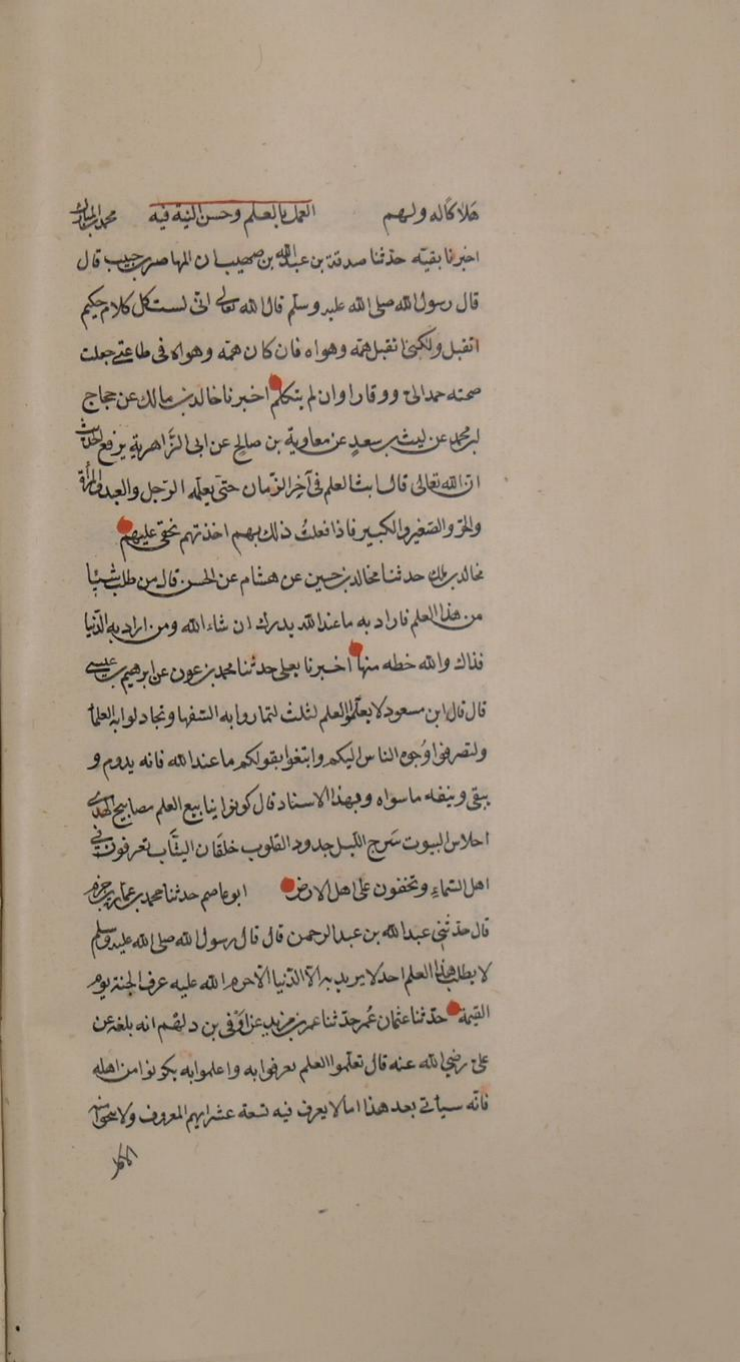 هلاكا له ولهم العمل بالعلم وحسن النية فيه محمد بن المبارك
اخبرنا بقية حدثنا صدقة بن عبد الله بن صهيب ان المهاصر بن حبيب قال
قال رسول الله صلى الله عليه وسلم قال الله تعالى انى لست كل كلام حكيم
اتقبل ولكنى اتقبل همه وهواه فان كان همه وهواه فى طاعتى جعلت
صمته حمدا لى ووقارا وان لم يتكلم اخبرنا خالد بن مالك عن حجاج
بن محمد عن ليث بن سعد عن معاوية بن صالح عن ابى الزاهرية يرفع الحديث
ان الله تعالى قال ابث العلم فى آخر الزمان حتى يعلمه الرجل والعبد والمرأة
والحر والصغير والكبير فاذا فعلت ذلك بهم اخذتهم بحقى عليهم
مخالد بن مالك حدثنا مخالد بن حسين عن هشام عن الحسن قال من طلب شيئا
من هذا العلم فاراد به ما عند الله يدرك ان شاء الله ومن اراد به الدنيا
فذاك والله حظه منها اخبرنا يعلى حدثنا محمد بن عون عن ابرهيم بن عيسى
قال قال ابن مسعود لا تعلموا العلم لثلث لتماروا به السفها وتجادلوا به العلما
ولتصرفوا وجوه الناس اليكم وابتغوا بقولكم ما عند الله فانه يدوم و
يبقى وينفد ما سواه وبهذا الاسناد قال كونوا ينابيع العلم مصابيح الهدى
احلاس البيوت سرج الليل جدود القلوب خلقان الثياب تعرفون فى
اهل السماء وتخفون على اهل الارض ابو عاصم حدثنا محمد بن عمارة بن حزم
قال حدثنى عبد الله بن عبد الرحمن قال قال رسول الله صلى الله عليه وسلم
لا يطلب هذا العلم احد لا يريد به الا الدنيا الا حرم الله عليه عرف الجنة يوم
القيمة حدثنا عثمان عمر حدثنا عمر بن مزيد عن اوفى بن دلهم انه بلغه عن
على رضي الله عنه قال تعلموا العلم تعرفوا به واعلموا به تكونوا من اهله
فانه سيأتى بعد هذا اما لا يعرف فيه تسعة عشرايهم المعروف ولا ينجوا منه